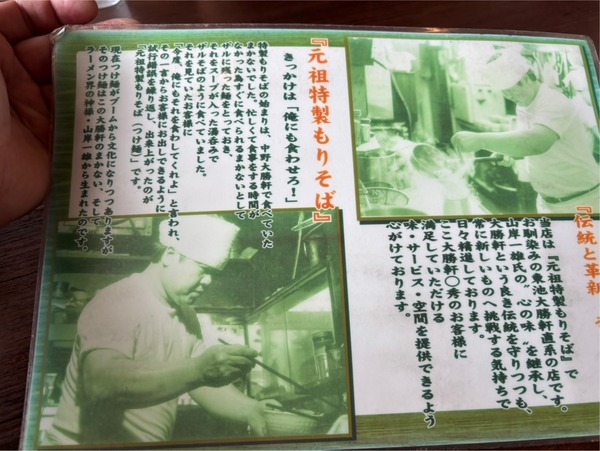 『伝統と革新
当店は『元祖特製もりそば』で
お馴染みの東池大勝軒直系の店です。
山岸一雄氏の〝心の味〟を継承し、
大勝軒という良き伝統を守りつつも、
常に新しいものへ挑戦する気持ちで
日々精進しております。
ここ大勝軒〇秀のお客様に
満足していただける
味・サービス・空間を提供できるよう
心がけております。
『元祖特製もりそば』
きっかけは「俺にも食わせろ！」
特製もりそばの始まりは、中野大勝軒で食べていた
まかないでした。忙しく、食事をする時間が
なかった為すぐに食べられるまかないとして
ザルに残った麺をとっておき、
それをスープが入った湯呑みで
ザルそばのように食べていました。
それを見ていたお客様に
「今度、俺にもそれを食わしてくれよ」と言われ、
その一言からお客様にお出しできるように
試行錯誤を繰り返し、出来上がったのが
『元祖特製もりそば（つけ麺）』です。
現在つけ麺がブームから文化になりつつありますが
そのつけ麺はこの大勝軒のまかない、そして
ラーメン界の神様・山岸一雄から生まれたのです。